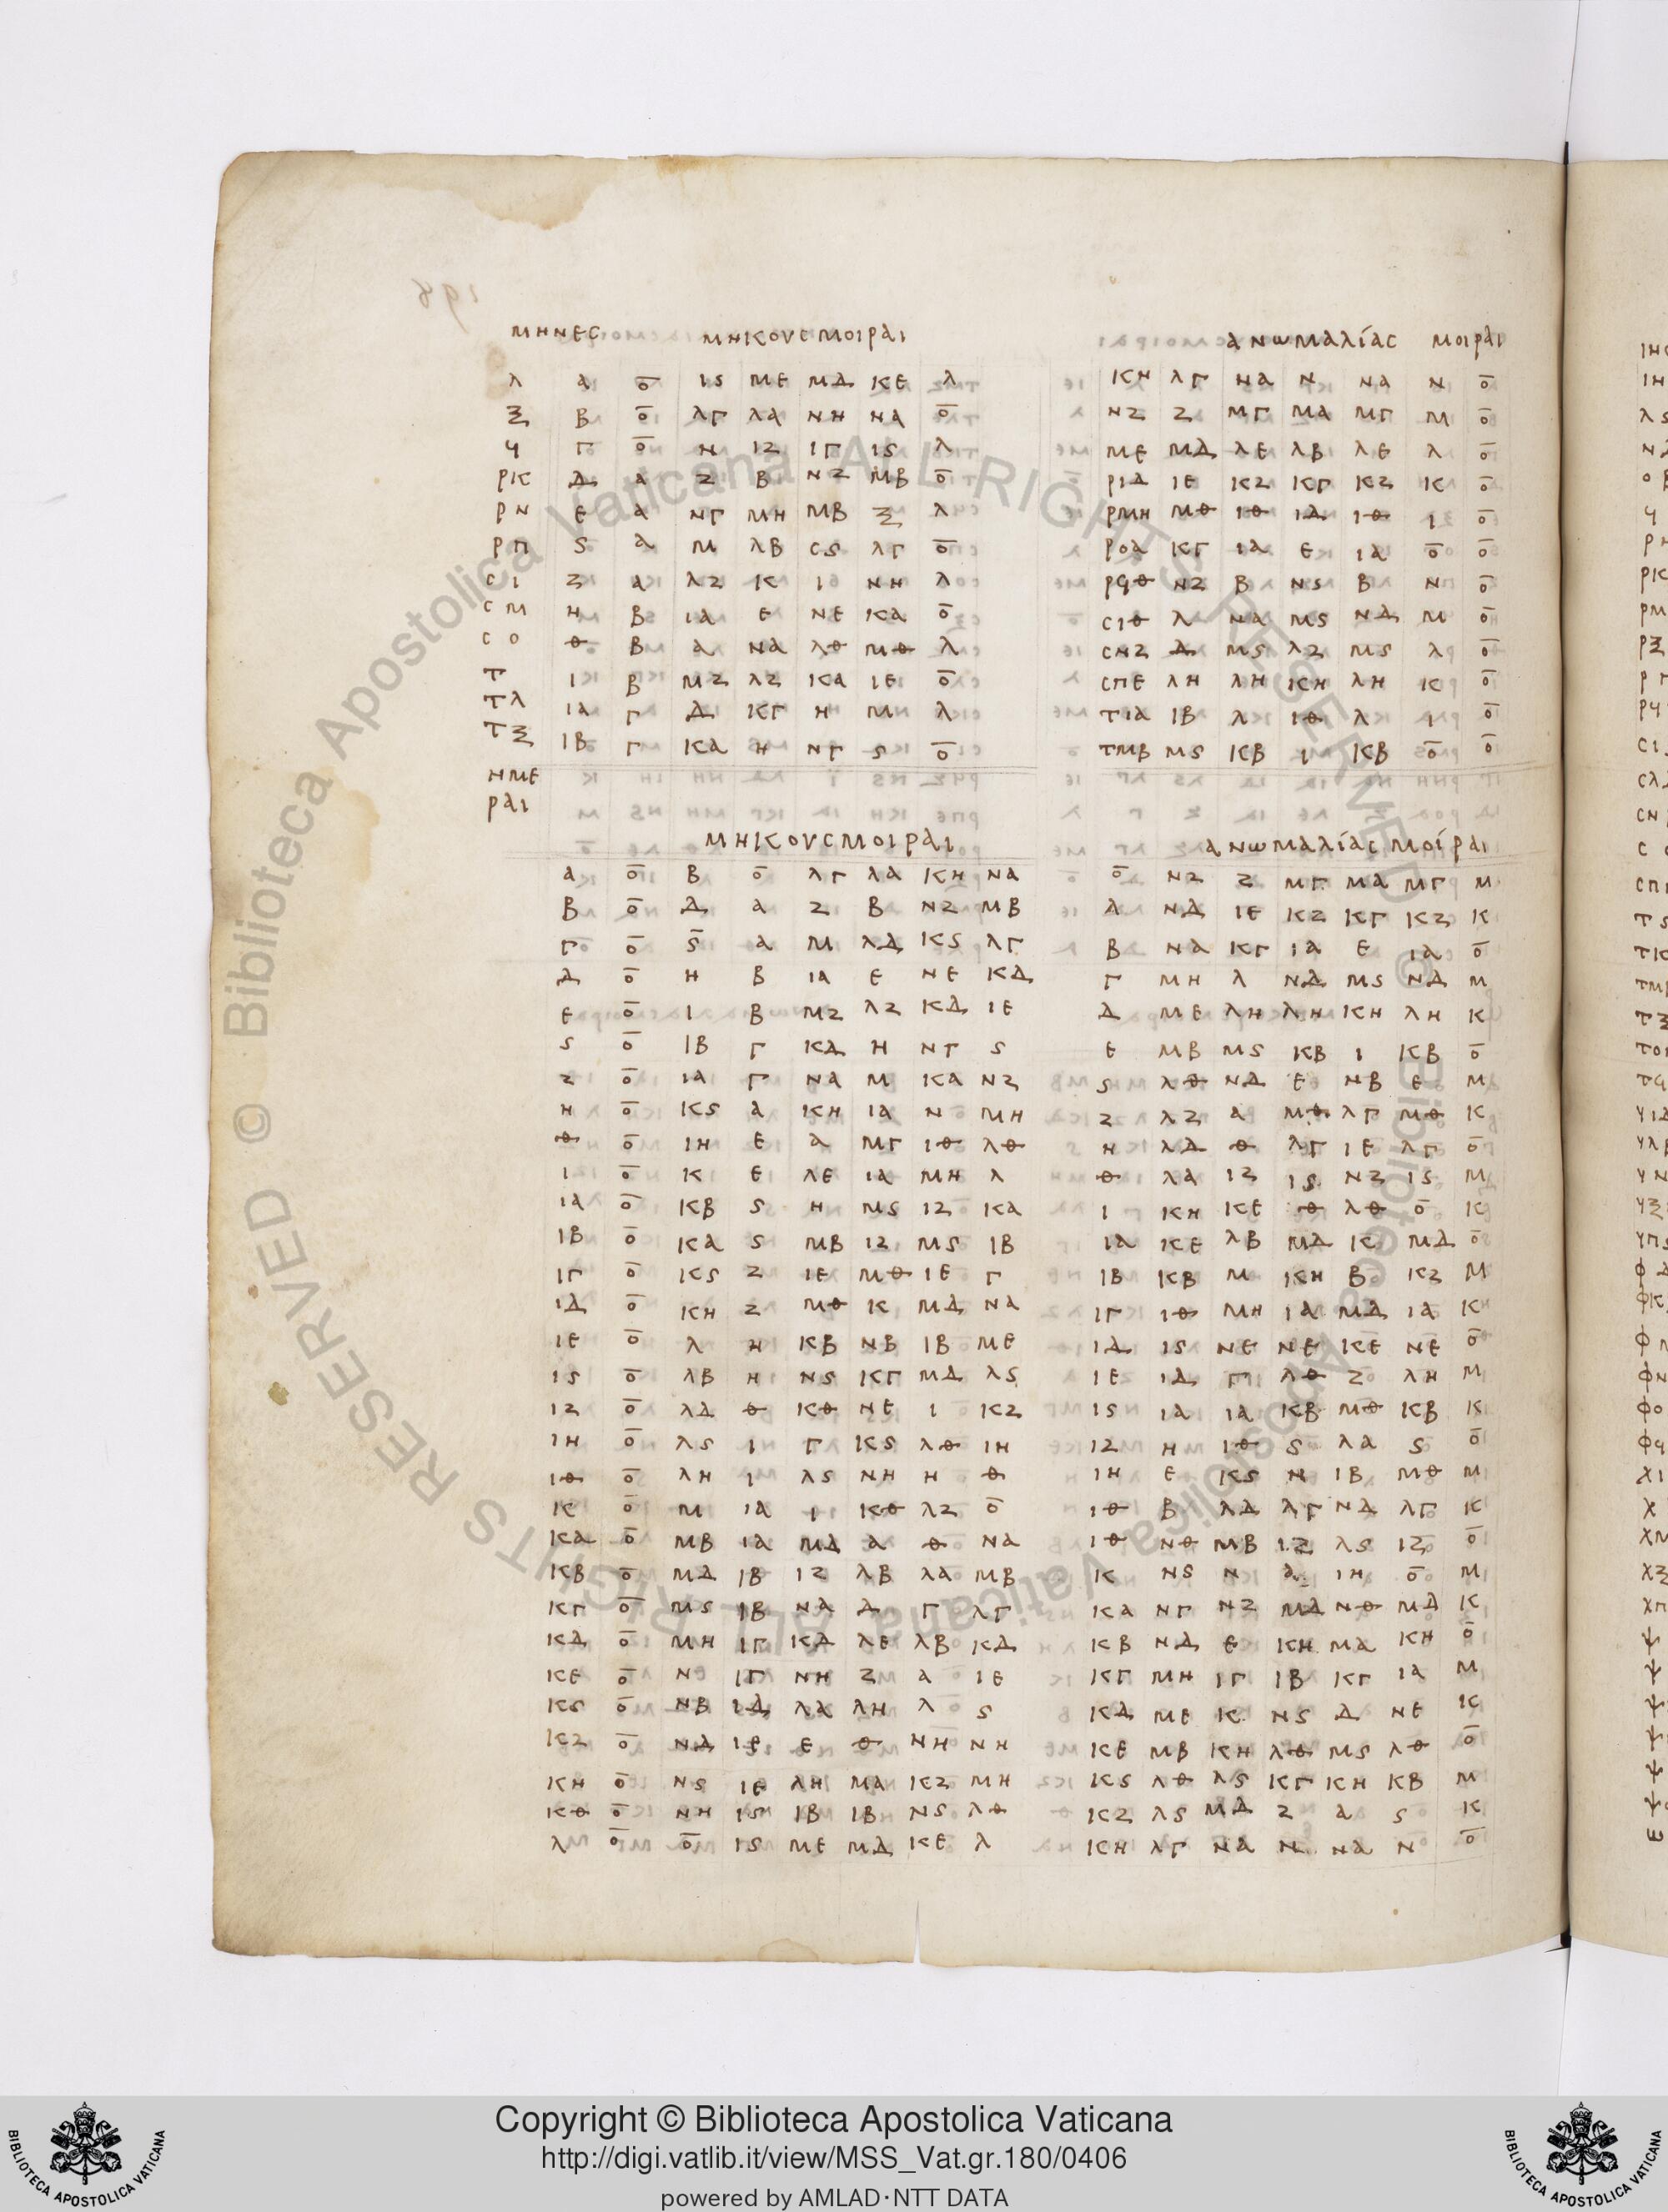 ΜΗΝΕC ΜΗΚΟΥC ΜΟΙΡΑΙ ΑΝωΜΑΛίΑC ΜΟΙΡΑΙ
Λ Α ο̄ ΙϚ ΜΕ ΜΔ ΚΕ Λ ΚΗ ΛΓ ΝΑ Ν ΝΑ Ν ο̄
Ξ Β ο̄ ΛΓ ΛΑ ΝΗ ΝΑ ο̄ ΝΖ Ζ ΜΓ ΜΑ ΜΓ Μ ο̄
Ϥ Γ ο̄ Ν ΙΖ ΙΓ ΙϚ Λ ΜΕ ΜΔ ΛΕ ΛΒ ΛΕ Λ ο̄
ΡΚ Δ Α Ζ Β ΝΖ ΜΒ ο̄ ΡΙΔ ΙΕ ΚΖ ΚΓ ΚΖ Κ ο̄
ΡΝ Ε Α ΝΓ ΜΗ ΜΒ Ξ Λ ΡΜΗ ΜΘ ΙΘ ΙΔ ΙΘ Ι ο̄
ΡΠ Ϛ Α Μ ΛΒ CϚ ΛΓ ο̄ ΡΟΑ ΚΓ ΙΑ Ε ΙΑ ο̄ ο̄
CΙ Ζ Α ΛΖ Κ Ι ΝΗ Λ ΡϤΘ ΝΖ Β ΝϚ Β Ν ο̄
CΜ Η Β ΙΑ Ε ΝΕ ΚΑ ο̄ CΙΘ Λ ΝΑ ΜϚ ΝΔ Μ ο̄
CΟ Θ Β Α ΝΑ ΛΘ ΜΘ Λ CΝΖ Δ ΜϚ ΛΖ ΜϚ Λ ο̄
Τ Ι Β ΜΖ ΛΖ ΚΑ ΙΕ ο̄ CΠΕ ΛΗ ΛΗ ΚΗ ΛΗ Κ ο̄
ΤΛ ΙΑ Γ Δ ΚΓ Η Μ Λ ΤΙΑ ΙΒ Λ ΙΘ Λ Ι ο̄
ΤΞ ΙΒ Γ ΚΑ Η ΝΓ Ϛ ο̄ ΤΜΒ ΜϚ ΚΒ Ι ΚΒ ο̄ ο̄
ΗΜΕ
ΡΑΙ
ΜΗΚΟΥC ΜΟΙΡΑΙ ΑΝωΜΑΛίΑC ΜΟίΡΑΙ
Α ο̄ Β ο̄ ΛΓ ΛΑ ΚΗ ΝΑ ο̄ ΝΖ Ζ ΜΓ ΜΑ ΜΓ Μ
Β ο̄ Δ Α Ζ Β ΝΖ ΜΒ Λ ΝΔ ΙΕ ΚΖ ΚΓ ΚΖ Κ
Γ ο̄ Ϛ̄ Α Μ ΛΔ ΚϚ ΛΓ Β ΝΑ ΚΓ ΙΑ Ε ΙΑ ο̄
Δ ο̄ Η Β ΙΑ Ε ΝΕ ΚΔ Γ ΜΗ Λ ΝΔ ΜϚ ΝΔ Μ
Ε ο̄ Ι Β ΜΖ ΛΖ ΚΔ ΙΕ Δ ΜΕ ΛΗ ΛΗ ΚΗ ΛΗ Κ
Ϛ ο̄ ΙΒ Γ ΚΔ Η ΝΓ Ϛ Ε ΜΒ ΜϚ ΚΒ Ι ΚΒ ο̄
Ζ ο̄ ΙΑ Γ ΝΑ Μ ΚΑ ΝΖ Ϛ ΛΘ ΝΔ Ε ΝΒ Ε Μ
Η ο̄ ΚϚ Α ΚΗ ΙΑ Ν ΜΗ Ζ ΛΖ Α ΜΘ ΛΓ ΜΘ Κ
Θ ο̄ ΙΗ Ε Α ΜΓ ΙΘ ΛΘ Η ΛΔ Θ ΛΓ ΙΕ ΛΓ ο̄
Ι ο̄ Κ Ε ΛΕ ΙΑ ΜΗ Λ Θ ΛΑ ΙΖ ΙϚ ΝΖ ΙϚ Μ
ΙΑ ο̄ ΚΒ Ϛ Η ΜϚ ΙΖ ΚΑ Ι ΚΗ ΚΕ Θ ΛΘ ο̄ Κ
ΙΒ ο̄ ΚΑ Ϛ ΜΒ ΙΖ ΜϚ ΙΒ ΙΑ ΚΕ ΛΒ ΜΔ Κ ΜΔ ο̄
ΙΓ ο̄ ΚϚ Ζ ΙΕ ΜΘ ΙΕ Γ ΙΒ ΚΒ Μ ΚΗ Β ΚΖ Μ
ΙΔ ο̄ ΚΗ Ζ ΜΘ Κ ΜΔ ΝΑ ΙΓ ΙΘ ΜΗ ΙΑ ΜΔ ΙΑ Κ
ΙΕ ο̄ Λ Η ΚΒ ΝΒ ΙΒ ΜΕ ΙΔ ΙϚ ΝΕ ΝΕ ΚΕ ΝΕ ο̄
ΙϚ ο̄ ΛΒ Η ΝϚ ΚΓ ΜΔ ΛϚ ΙΕ ΙΔ Γ ΛΘ Ζ ΛΗ Μ
ΙΖ ο̄ ΛΔ Θ ΚΘ ΝΕ Ι ΚΖ ΙϚ ΙΑ ΙΑ ΚΒ ΜΘ ΚΒ Κ
ΙΗ ο̄ ΛϚ Ι Γ ΚϚ ΛΘ ΙΗ ΙΖ Η ΙΘ Ϛ ΛΑ Ϛ ο̄
ΙΘ ο̄ ΛΗ Ι ΛϚ ΝΗ Η Θ ΙΗ Ε ΚϚ Ν ΙΒ ΜΘ Μ
Κ ο̄ Μ ΙΑ Ι ΚΘ ΛΖ ο̄ ΙΘ Β ΛΔ ΛΓ ΝΔ ΛΓ Κ
ΚΑ ο̄ ΜΒ ΙΑ ΜΔ Α Θ ΝΑ ΙΘ ΝΘ ΜΒ ΙΖ ΛϚ ΙΖ ο̄
ΚΒ ο̄ ΜΔ ΙΒ ΙΖ ΛΒ ΛΑ ΜΒ Κ ΝϚ Ν Α ΙΗ ο̄ Μ
ΚΓ ο̄ ΜϚ ΙΒ ΝΑ Δ Γ ΛΓ ΚΑ ΝΓ ΝΖ ΜΔ ΝΘ ΜΔ Κ
ΚΔ ο̄ ΜΗ ΙΓ ΚΔ ΛΕ ΛΒ ΚΔ ΚΒ ΝΔ Ε ΚΗ ΜΑ ΚΗ ο̄
ΚΕ ο̄ Ν ΙΓ ΝΗ Ζ Α ΙΕ ΚΓ ΜΗ ΙΓ ΙΒ ΚΓ ΙΑ Μ
ΚϚ ο̄ ΝΒ ΙΔ ΛΑ ΛΗ Λ Ϛ ΚΔ ΜΕ Κ ΝϚ Δ ΝΕ Κ
ΚΖ ο̄ ΝΔ ΙΕ Ε Θ ΝΗ ΝΗ ΚΕ ΜΒ ΚΗ ΛΘ ΜϚ ΛΘ ο̄
ΚΗ ο̄ ΝϚ ΙΕ ΛΗ ΜΑ ΚΖ ΜΗ ΚϚ ΛΘ ΛϚ ΚΓ ΚΗ ΚΒ Μ
ΚΘ ο̄ ΝΗ ΙϚ ΙΒ ΙΒ ΝϚ ΛΘ ΚΖ ΛϚ ΜΔ Ζ Α Ϛ Κ
Λ ο̄ ο̄ ΙϚ ΜΕ ΜΔ ΚΕ Λ ΚΗ ΛΓ ΝΑ Ν ΝΑ Ν ο̄
© Biblioteca Apostolica Vaticana ALL RIGHTS RESERVED
© Biblioteca Apostolica Vaticana ALL RIGHTS RESERVED
Copyright © Biblioteca Apostolica Vaticana
http://digi.vatlib.it/view/MSS_Vat.gr.180/0406
powered by AMLAD·NTT DATA
BIBLIOTECA APOSTOLICA VATICANA
BIBLIOTECA APOSTOLICA VATICANA